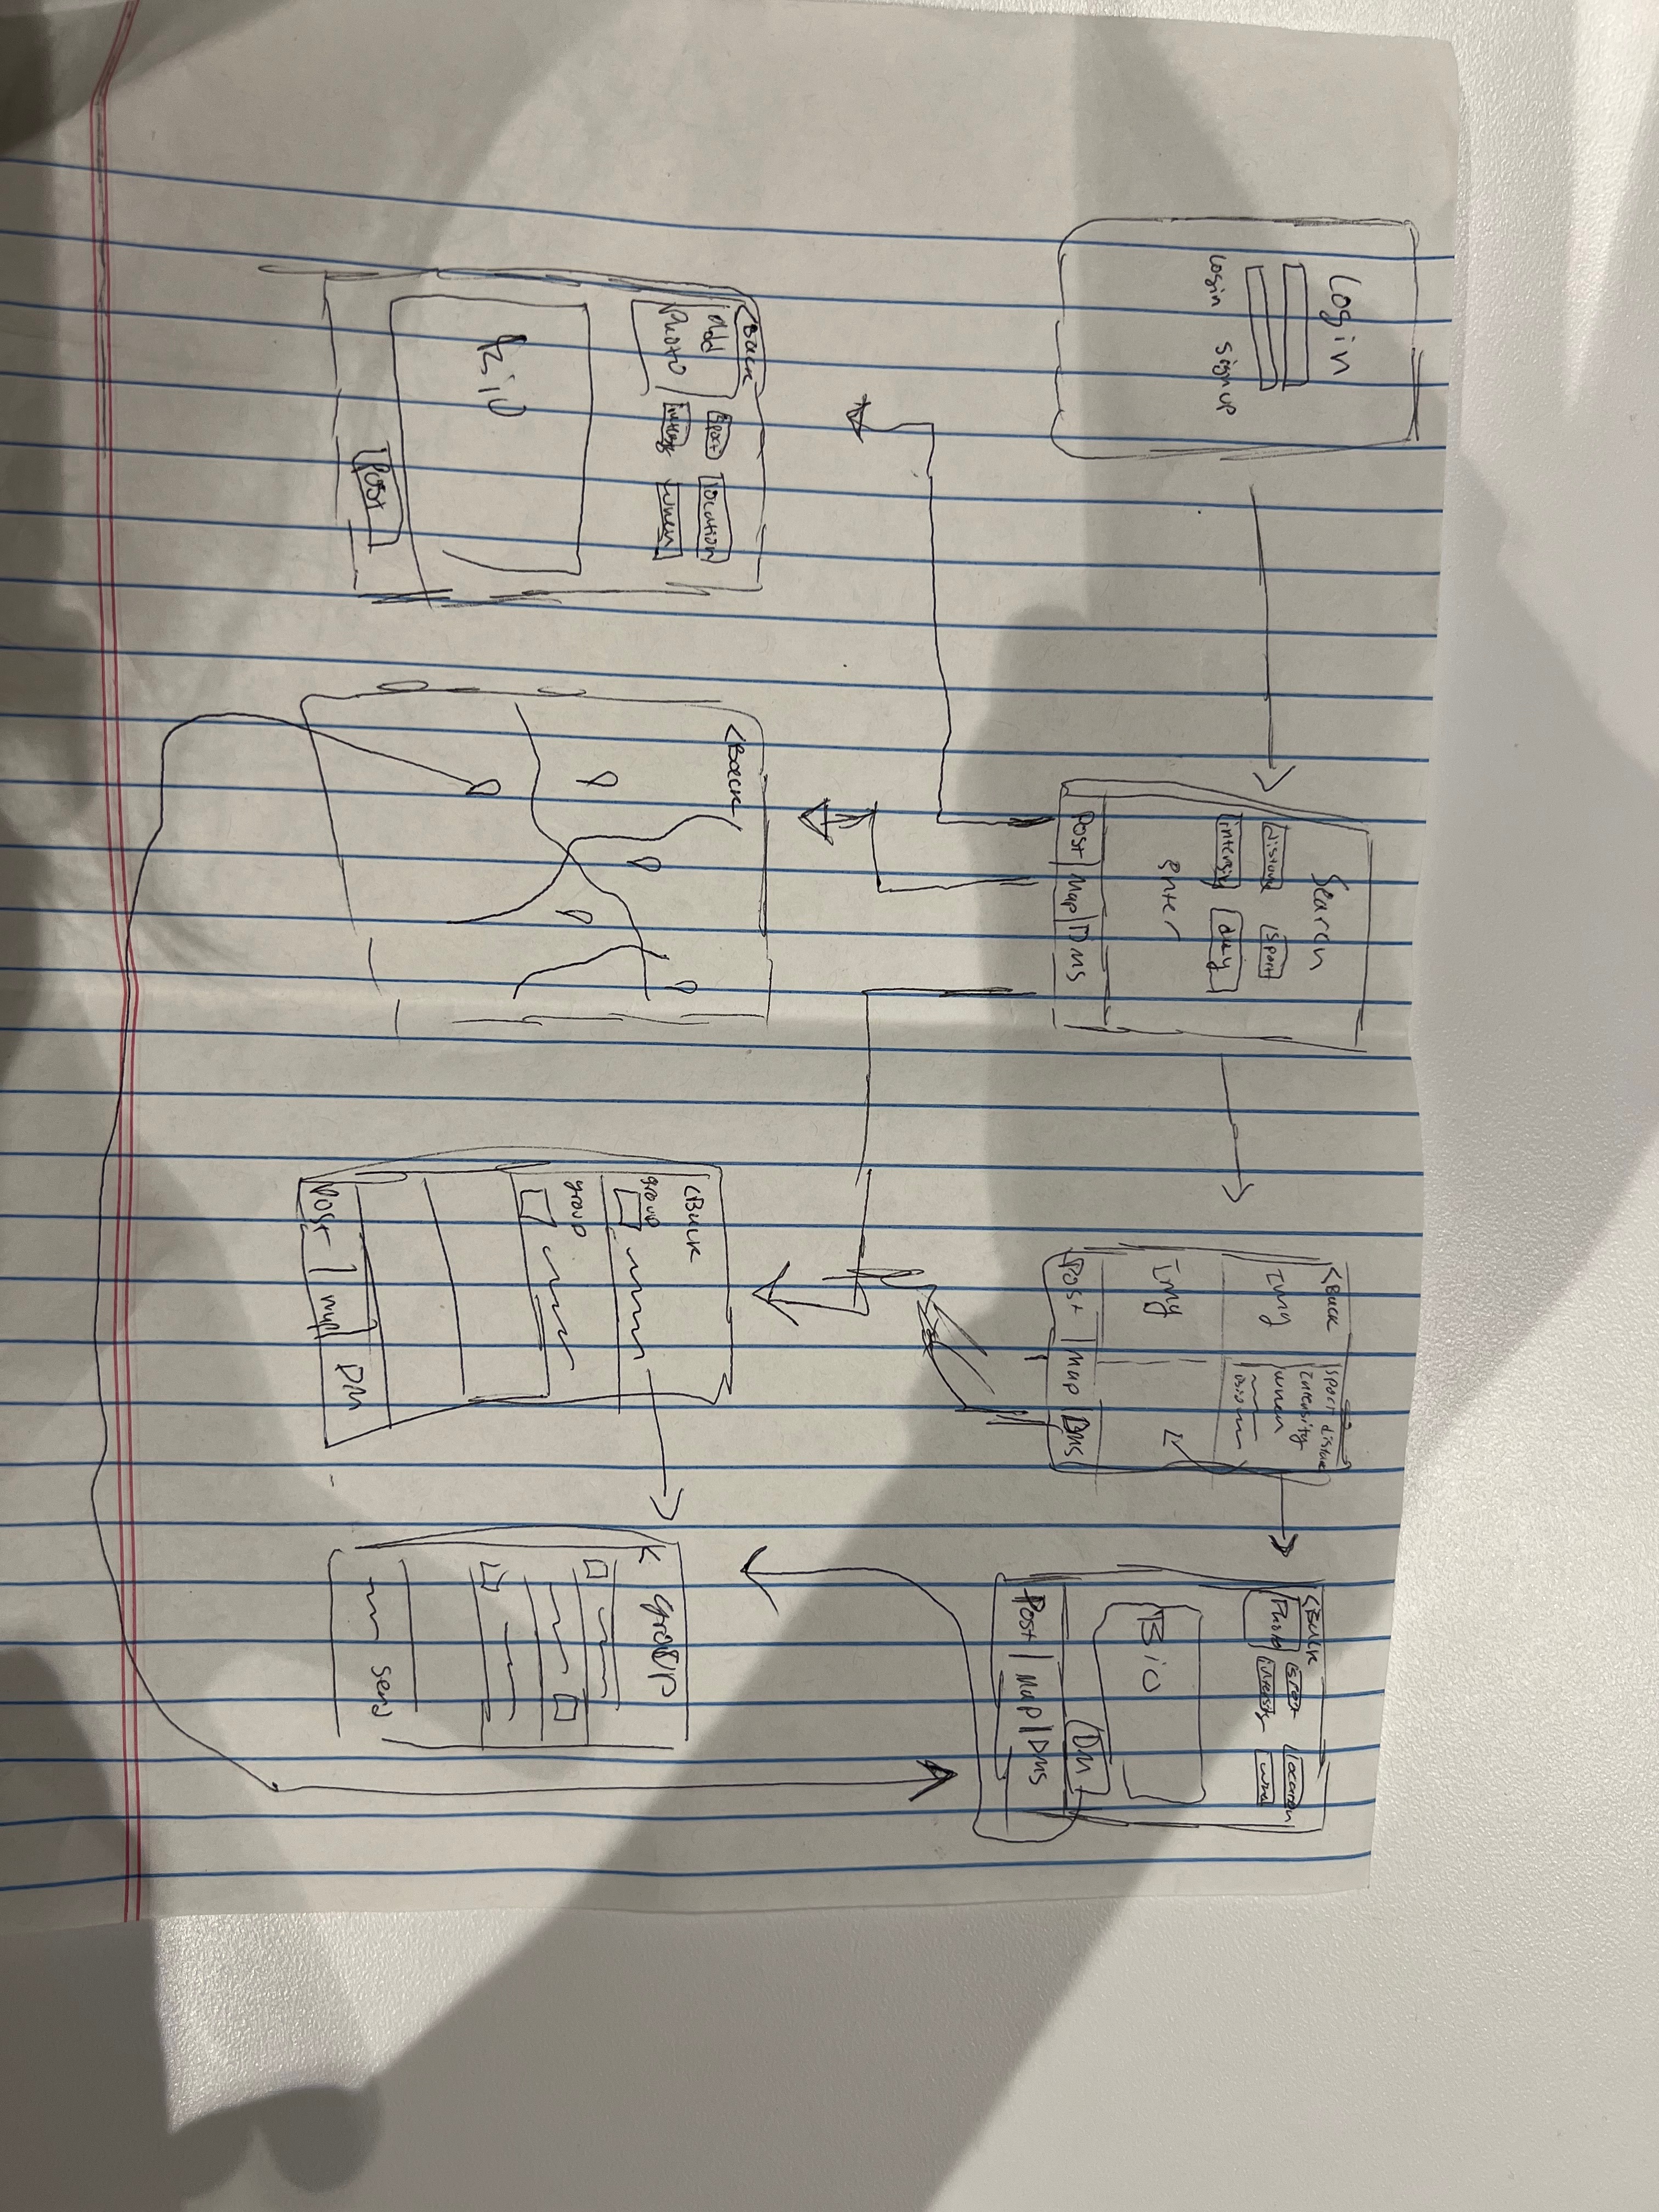 Login
Login Sign up
Search
distance sport
intensity day
enter
Post | Map | Dms
<Back
Img
sport distance
intensity
when
Img
Post | Map | Dms
<Back
Photo sport location
intensity when
Bio
Dm
Post | Map | Dms
<Back
Add
Photo
sport location
intensity when
Bio
Post
<Back
<Back
group
group
Post | Map | DM
< group
send